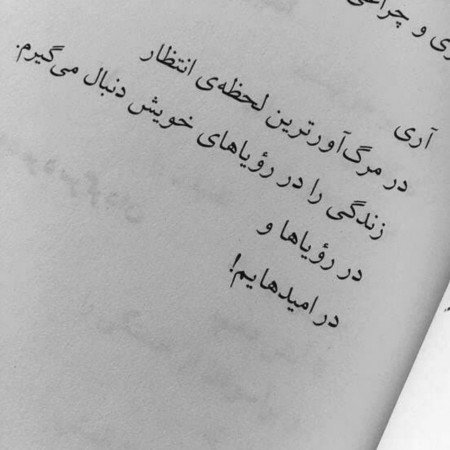 ی و چراغی
آری
در مرگ‌آورترین لحظه‌ی انتظار
زندگی را در رؤیاهای خویش دنبال می‌گیرم.
در رؤیاها و
در امیدهایم!